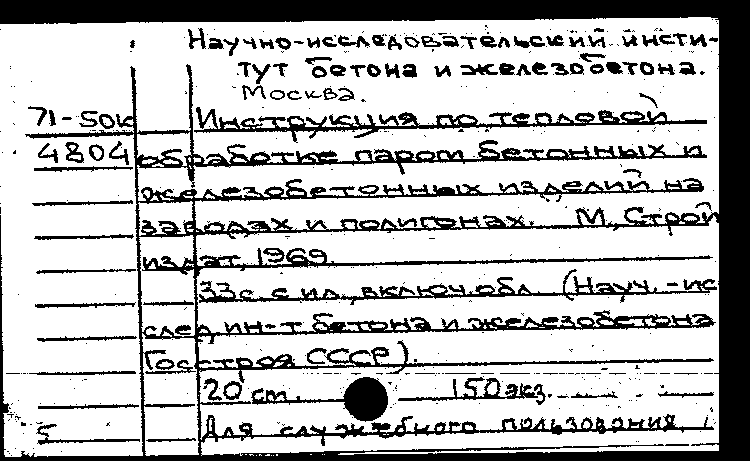 Научно-исследовательский инсти-
тут бетона и железобетона.
Москва.
71-50к Инструкция по тепловой
4804 обработке паром бетонных и
железобетонных изделий на
заводах и полигонах. М., Строй
издат, 1969.
33с. с ил., включ. обл. (Науч.-ис
след. ин-т бетона и железобетона
Госстроя СССР).
20 cm. 150 экз.
5 Для служебного пользования.